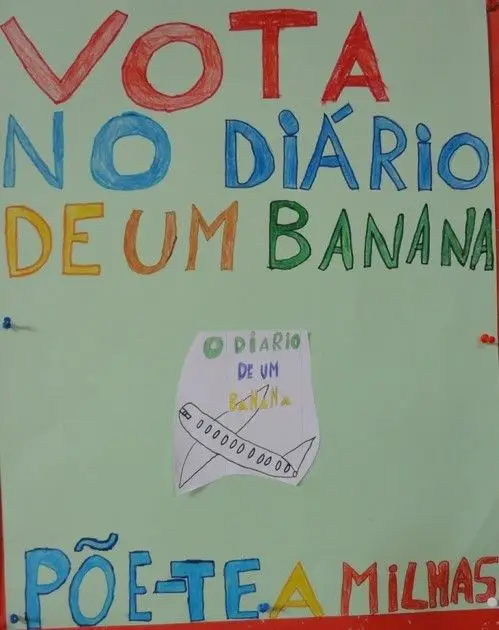 VOTA
NO DiÁRiO
DE UM BANANA
O DiARiO
DE UM
BANANA
PÕE-TE A MiLHAS